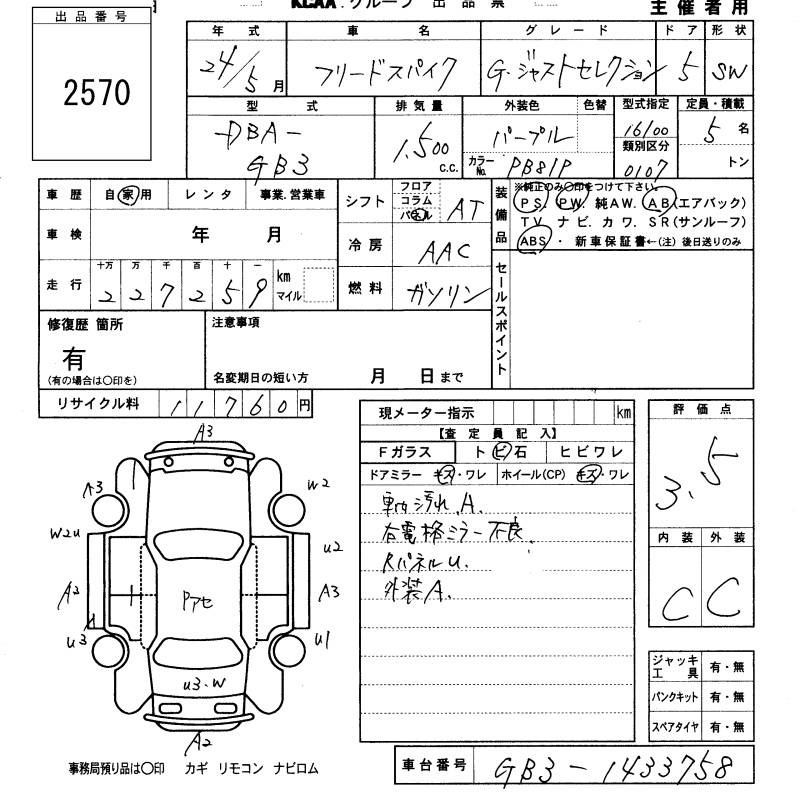 出品番号
2570
KCAA.グループ 出品票
主催者用
年式 車名 グレード ドア 形状
24/5月 フリードスパイク G・ジャストセレクション 5 SW
型式 排気量 外装色 色替 型式指定 定員・積載
DBA-
GB3
1,500 c.c.
パープル
カラーNo. PB81P
16100
類別区分
0107
5名
トン
車歴 自家用 レンタ 事業.営業車
車検 年 月
走行 十万 万 千 百 十 一
227259 km マイル
シフト フロア コラム パネル AT
冷房 AAC
燃料 ガソリン
装備品
※純正のみ〇印をつけて下さい。
PS. PW. 純AW. AB(エアバック)
TV. ナビ. カワ. SR(サンルーフ)
ABS ・ 新車保証書←(注)後日送りのみ
セールスポイント
修復歴 箇所
有
(有の場合は〇印を)
注意事項
名変期日の短い方 月 日まで
リサイクル料 11760円
現メーター指示 km
【査定員記入】
Fガラス ト ビ石 ヒビワレ
ドアミラー キズ・ワレ ホイール(CP) キズ・ワレ
車内汚れ.A.
右電格ミラー不良.
RパネルU.
外装A.
評価点
3.5
内装 外装
C C
A3
A3 W2
W2U U2
A2 Pアセ A3
U3 U1
U3・W
A2
ジャッキ工具 有・無
パンクキット 有・無
スペアタイヤ 有・無
事務局預り品は〇印 カギ リモコン ナビロム
車台番号 GB3-1433758